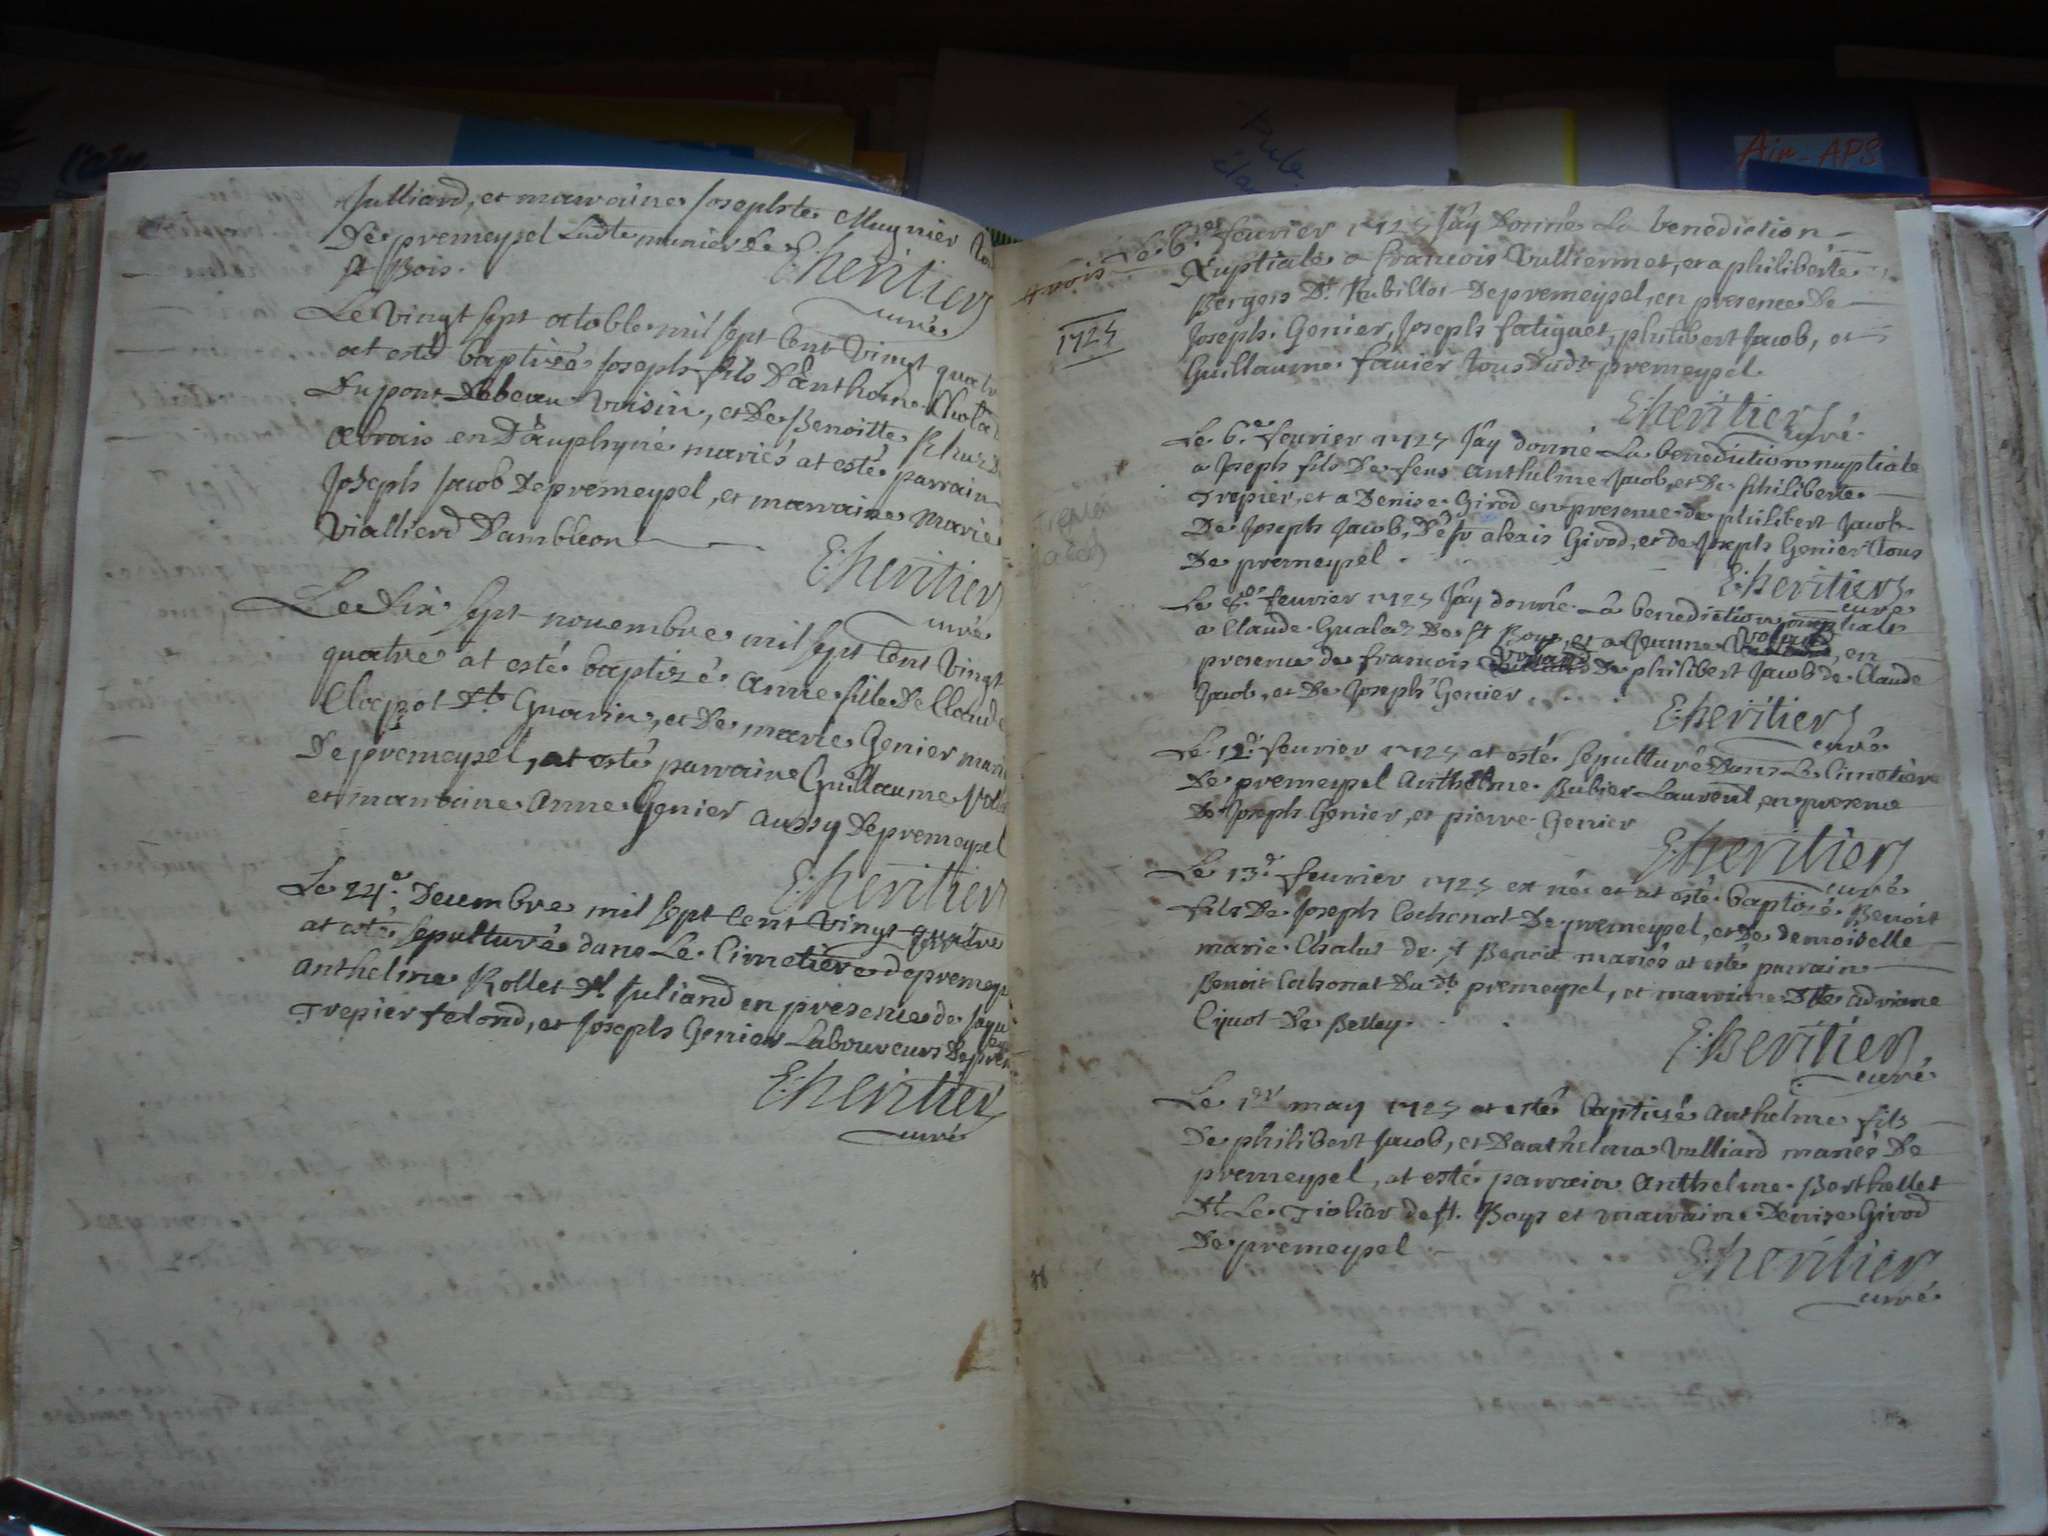 Air-APS
Julliard, et marraine Josephte Mugnier
De premeysel Ludte munier de
st Bois.
E: heritier
curé
Le vingt sept octoble mil sept Cent Vingt quatre
at esté baptizé Joseph fils D'anthoine
Du pont Debeau Voisin, et De Benoitte
abrais en Dauphyné mariés at esté parrain
Joseph Jacob De premeysel, et marraine Marie
Viallierd D'ambleon
E: heritier
curé
Le dix sept novembre mil sept Cent Vingt
quatre at esté baptizé anne fille De Claude
Clapot dt Guarin, et De marie Genier
De premeysel, at esté parraine Guillaume
et marraine anne Genier aussy De premeysel
E: heritier
Le 24e. Decembre mil sept Cent Vingt quatre
at esté sepulturé dans Le Cimetiere de
anthelme Rollet dt Juliand en presence de
Trepier felond, et Joseph Genier Laboureurs
E: heritier
curé
Le 6er fevrier 1725 J'ay Donné La benediction
Nuptiale a francois Vulliermet, et a philiberte
Berger Dt Rubillot De premeysel, en presence De
Joseph Genier, Joseph fatiguet, philibert Jacob, et
Guillaume favier tous dudt premeysel.
1725
E: heritier
curé
Le 6.e fevrier 1725 J'ay donné La benediction nuptiale
a Joseph fils De feus anthelme Jacob, et De philiberte
Trepier, et a Denise Girod en presence de philibert Jacob
De Joseph Jacob, De fr alexis Girod, et de Joseph Genier tous
De premeysel.
Trepier
Jacob
E: heritier
curé
Le 6.er fevrier 1725 J'ay donné La benediction nuptiale
a Claude Gualaz De st Boys, et a Jeanne, en
presence de francois De philibert Jacob de Claude
Jacob, et De Joseph Genier
E: heritier
curé
Le 12.e fevrier 1725 at esté sepulturé Dans Le Cimetiere
De premeysel Anthelme Rubier Laurent, en presence
De Joseph Genier, et pierre Genier
E: heritier
curé
Le 13.e fevrier 1725 est né et at esté baptisé Benoit
fils De Joseph Cochonat De premeysel, et De demoiselle
marie Chalut de st Benoit mariés at esté parrain
Benoit Cochonat Dudt premeysel, et marraine Dlle adriane
De Belley.
E: heritier
curé
Le 1er may 1725 at esté baptizé anthelme fils
De philibert Jacob, et D'anthelma Vulliard mariés De
premeysel, at esté parrain Anthelme Berthellet
dt Le Tiolier de st. Boys et marraine Denise Girod
De premeysel
E: heritier
curé